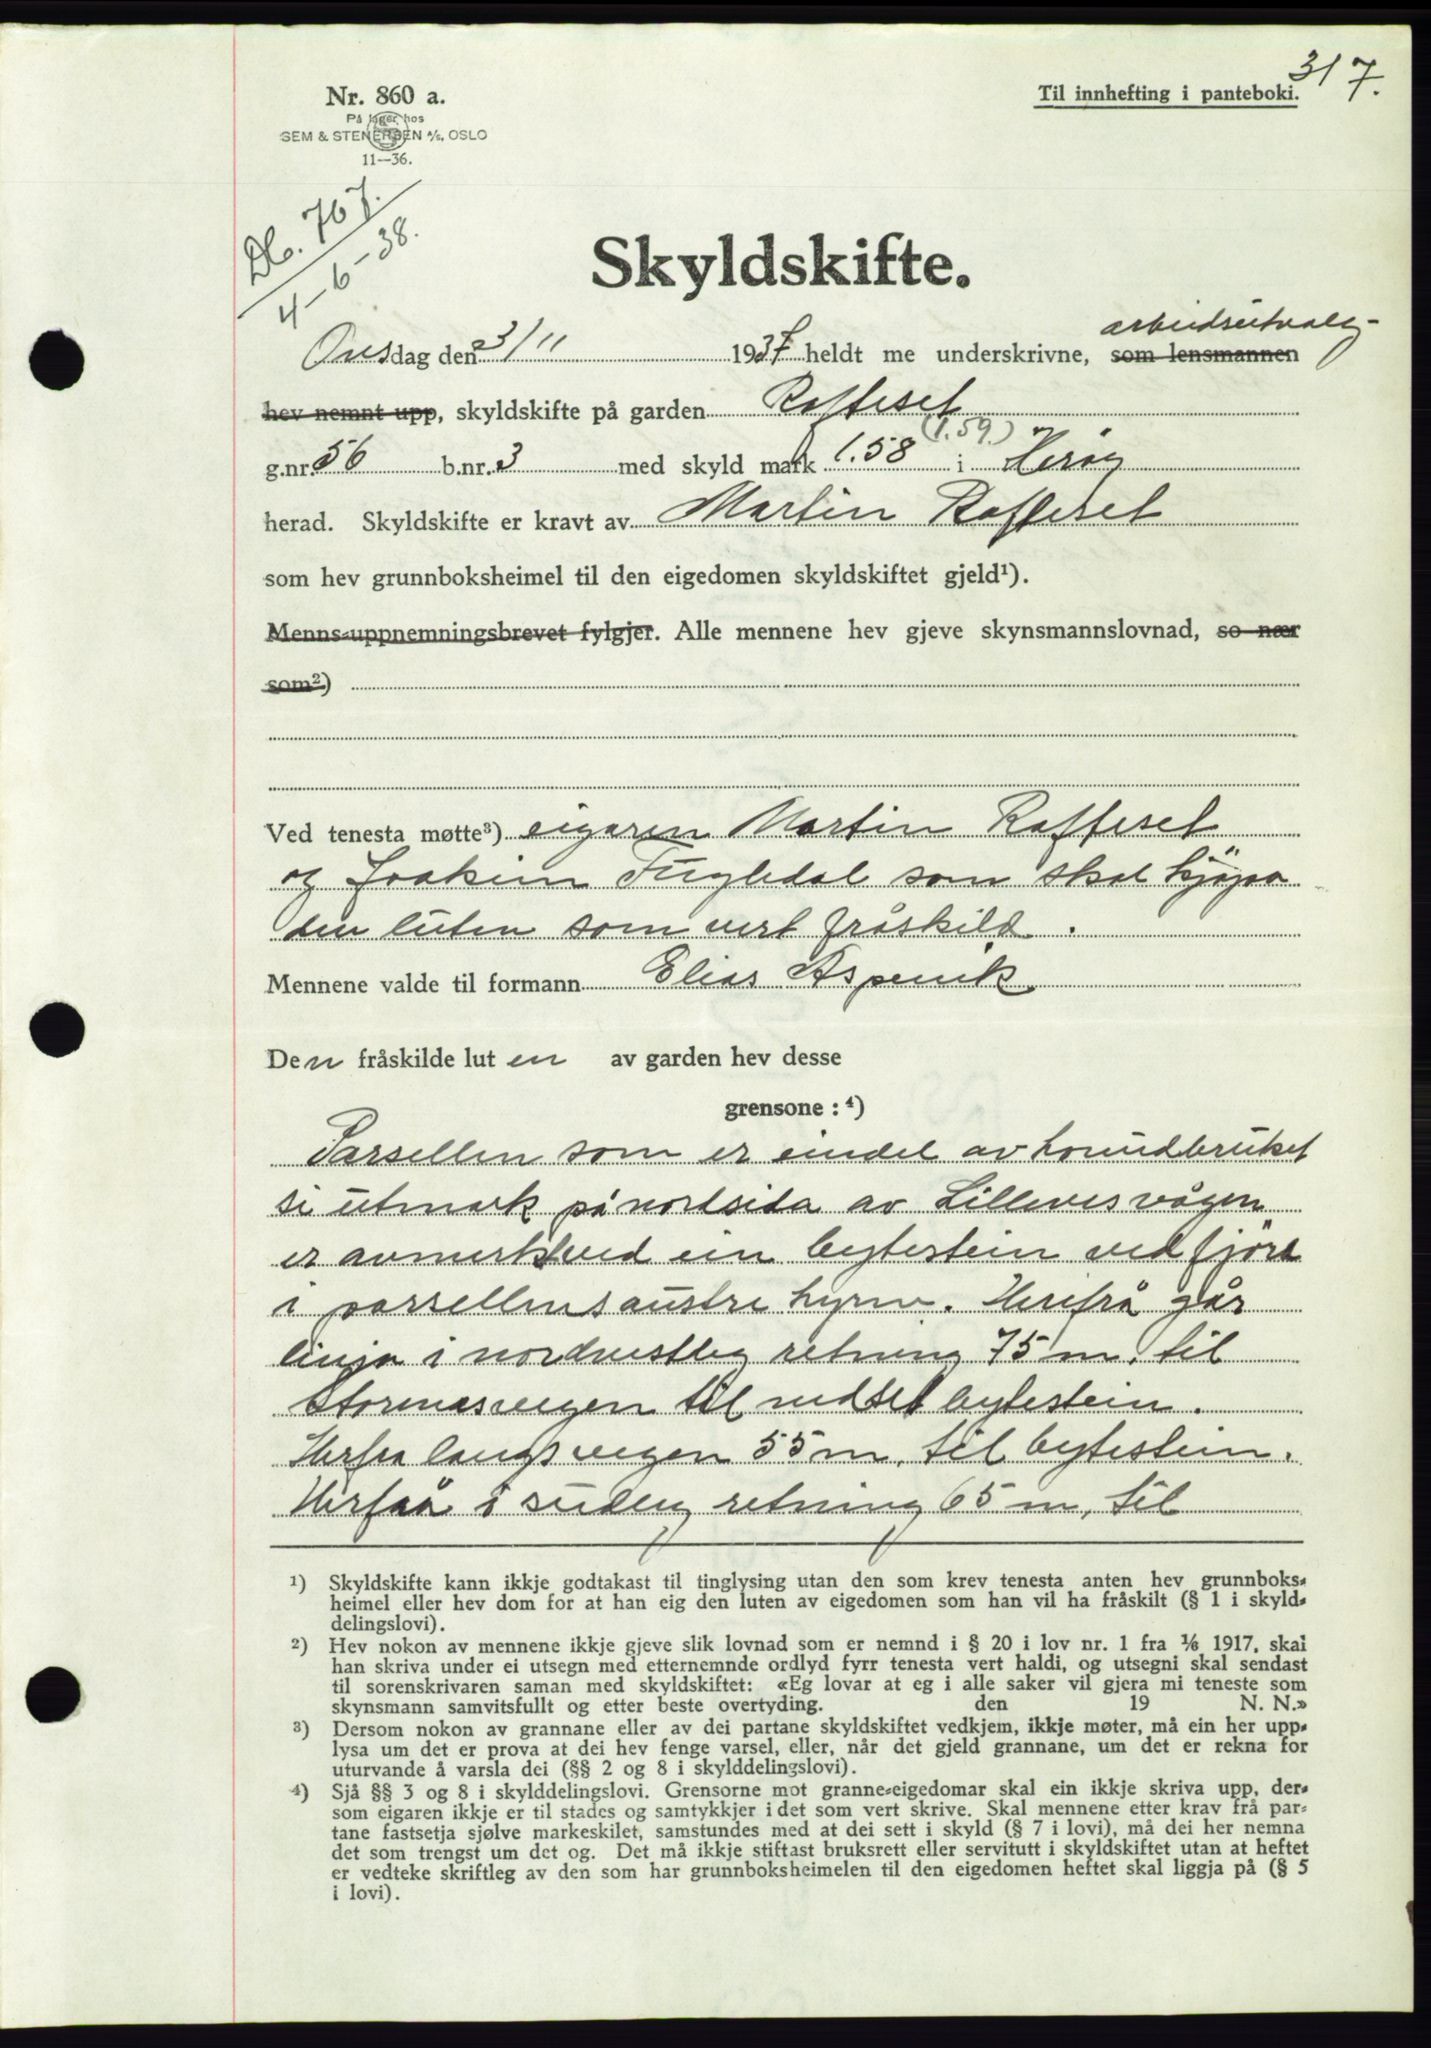 317.
Nr. 860 a.
Til innhefting i panteboki.
På lager hos
SEM & STENERSEN A/S, OSLO
11—36.
Db. 767.
4-6-38.
Skyldskifte.
arbeidsutvalg-
Onsdag den 3/11 1937 heldt me underskrivne, som lensmannen
hev nemnt upp, skyldskifte på garden Rafteset
(1.59.)
g.nr. 56 b.nr. 3 med skyld mark 1.58 i Herøy
herad. Skyldskifte er kravt av Martin Rafteset
som hev grunnboksheimel til den eigedomen skyldskiftet gjeld¹).
Menns-uppnemningsbrevet fylgjer. Alle mennene hev gjeve skynsmannslovnad, so nær
som²)
Ved tenesta møtte³) eigaren Martin Rafteset
og Joakim Fugledal som skal kjøpa
den luten som vert fråskild.
Mennene valde til formann Elias Aspevik
Den fråskilde luten av garden hev desse
grensone: ⁴)
Parsellen som er eindel av hovudbruket
si utmark på nordsida av Lillevesvågen
er avmerkt ved ein bytestein ved fjøra
i parsellens austre hyrna. Herifrå går
linja i nordvestleg retning 75 m. til
Stornesvegen til nedsett bytestein.
Herfra langs vegen 55 m. til bytestein.
Herfrå i sudleg retning 65 m. til
¹) Skyldskifte kann ikkje godtakast til tinglysing utan den som krev tenesta anten hev grunnboks-
heimel eller hev dom for at han eig den luten av eigedomen som han vil ha fråskilt (§ 1 i skyld-
delingslovi).
²) Hev nokon av mennene ikkje gjeve slik lovnad som er nemnd i § 20 i lov nr. 1 fra 1/6 1917, skal
han skriva under ei utsegn med etternemnde ordlyd fyrr tenesta vert haldi, og utsegni skal sendast
til sorenskrivaren saman med skyldskiftet: «Eg lovar at eg i alle saker vil gjera mi teneste som
skynsmann samvitsfullt og etter beste overtyding. den 19 N. N.»
³) Dersom nokon av grannane eller av dei partane skyldskiftet vedkjem, ikkje møter, må ein her upp-
lysa um det er prova at dei hev fenge varsel, eller, når det gjeld grannane, um det er rekna for
uturvande å varsla dei (§§ 2 og 8 i skylddelingslovi).
⁴) Sjå §§ 3 og 8 i skylddelingslovi. Grensorne mot granne-eigedomar skal ein ikkje skriva upp, der-
som eigaren ikkje er til stades og samtykkjer i det som vert skrive. Skal mennene etter krav frå par-
tane fastsetja sjølve markeskilet, samstundes med at dei sett i skyld (§ 7 i lovi), må dei her nemna
det som trengst um det og. Det må ikkje stiftast bruksrett eller servitutt i skyldskiftet utan at heftet
er vedteke skriftleg av den som har grunnboksheimelen til den eigedomen heftet skal liggja på (§ 5
i lovi).